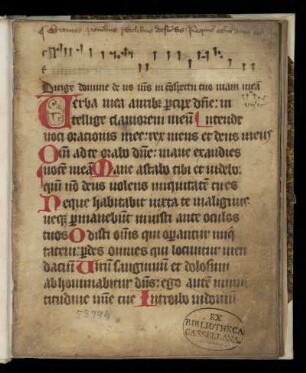 Dirige domine de us us in conspectu tuo viam meā
Verba mea auribꝰ ꝑcipe dn̄e: in
tellige clamorem meū Intende
voci orationis mee: rex meus et deus meus
Qm̄ ad te orabo dn̄e: mane exaudies
vocē meā Mane astabo tibi et videbo:
qm̄ nō deus volens iniquitatē tu es
Neque habitabit iuxta te malignus:
neqꝫ ꝑmanebunt iniusti ante oculos
tuos Odisti om̄s qui oꝑantur iniq̄
tatem: ꝑdes omnes qui locuntur men
daciū Virū sanguinum et dolosum
abhominabitur dn̄s: ego autē in mul
titudine mīe tue Introibo in domū
53794
EX
BIBLIOTHECA
CASSELLANA